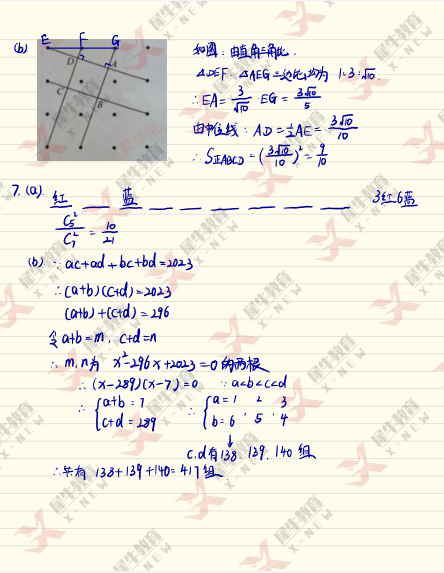 (b) E F G
D A
C B
如图:由直角三角比.
△DEF. △AEG三边比均为 1:3:√10.
∴EA=3/√10 EG=3√10/5
由中位线: AD=1/2AE=3√10/10
∴S正ABCD=(3√10/10)²=9/10
7.(a). 红 __ 蓝 __ __ __ __ __ __ __ 3红6蓝
C₅²/C₇²=10/21
(b) ∵ac+ad+bc+bd=2023
∴(a+b)(c+d)=2023
(a+b)+(c+d)=296
令a+b=m, c+d=n
∴m,n为 x²-296x+2023=0的两根
∴(x-289)(x-7)=0 ∵a<b<c<d
∴{a+b=7 ∴{a=1 2 3
c+d=289 b=6, 5, 4
↓
c.d有138, 139, 140组
∴共有 138+139+140=417组
犀牛教育
X-NEW